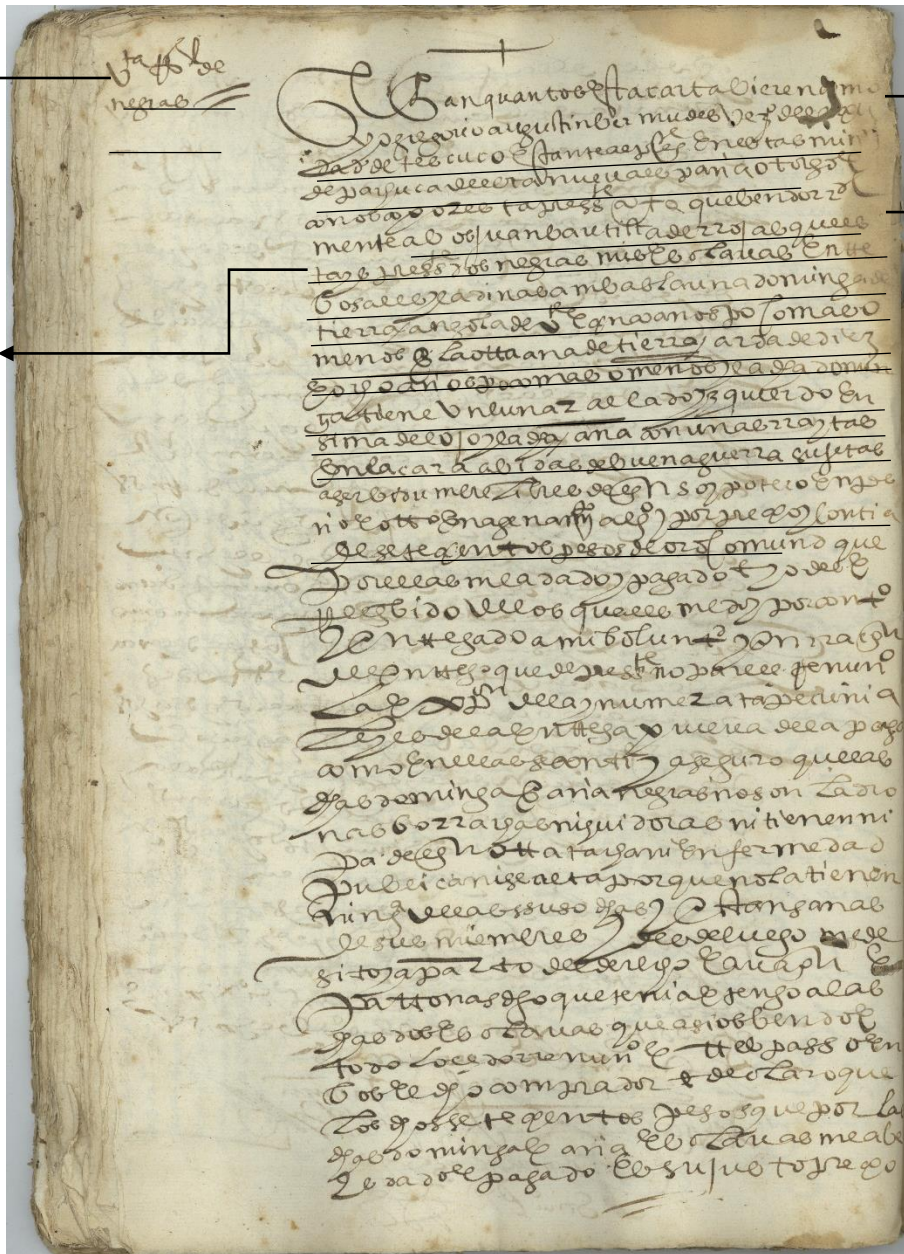 Vta de
negras
Sepan quantos esta carta vieren como
Yo gregorio augustin bermudes Vezo de la ciu
dad de tescuco estante al preste en estas minas
de pachuca desta nueva españa otorgo
conosco por esta presste carta que vendo rl
mente a bos juan bautista de rrojas que es
tays pressto dos negras mis esclavas entre
bosales y ladinas ambas la una dominga de
tierra angola de Ve años po mas o
menos e la otra ana de tierra arda de diez
y ocho años poco mas o menos y la dha domin
ga tiene un lunar al lado yzquierdo en
sima del ojo y la dha ana con unas rraytas
en la cara abidas de buena guerra sujetas
a serbidumbre libres de enpeno ypoteca
ni otro enagenami algo y por prescio y contia
de setecientos pesos de oro comund que
por ellas me a dado y pagado e yo del
rrecibido de los quales me doy por conto
y entregado a mi boluntd y en rraçon
del entrego que de presste no parece renunco
la exon de la ynumerata pecunia
leyes de la entrega prueva de la paga
como en ellas se contiey aseguro que las
dhas dominga e ana negras no son ladro
nas borrachas ni huidoras ni tienen ni
otra tacha ni enfermedad
publica ni secreta porque no la tienen
ninga de las susodhas y estan sanas
de sus miembros y desde luego me de
sisto y aparto del derecho e aucion
patronasgo que tenia e tengo a las
dhas dos esclavas que asi os bendo e
todo lo cedo rrenunco e traspasso en
bos el dho comprador e declaro que
los dhos setecientos pesos que por las
dhas dominga e ana esclavas me abe
ys dado e pagado es su justo precio